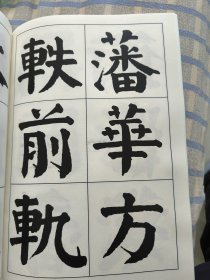 藩華方
軼前軌